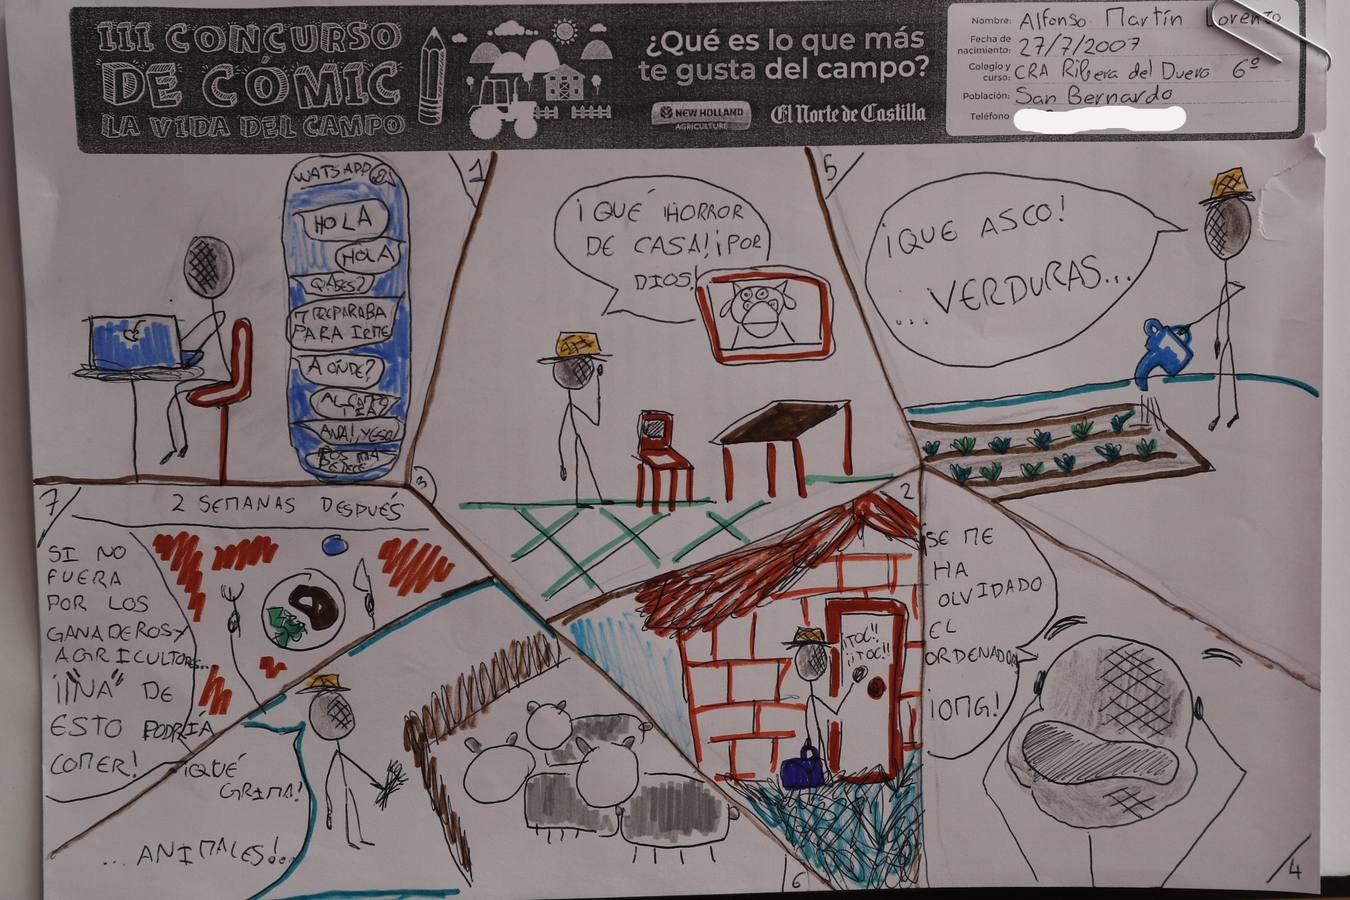 III CONCURSO
DE CÓMIC
LA VIDA DEL CAMPO
¿Qué es lo que más
te gusta del campo?
NEW HOLLAND
AGRICULTURE
El Norte de Castilla
Nombre: Alfonso Martín Lorenzo
Fecha de
nacimiento: 27/7/2007
Colegio y
curso: CRA Ribera del Duero 6º
Población: San Bernardo
Teléfono
1
WATSAPP
HOLA
HOLA
QASES?
PREPARABA
PARA IRME
A ONDE?
AL CAMPO
TÍA
ANDA! ¿Y ESO?
2
¡TOC!!
¡¡TOC!!
3
¡QUÉ HORROR
DE CASA! ¡POR
DIOS!
4
SE ME
HA
OLVIDADO
EL
ORDENADOR
¡OMG!
5
¡QUE ASCO!
... VERDURAS...
6
¡QUÉ
GRIMA!
... ANIMALES!..
7
2 SEMANAS DESPUÉS
SI NO
FUERA
POR LOS
GANADEROS Y
AGRICULTORES...
¡¡"NA" DE
ESTO PODRÍA
COMER!